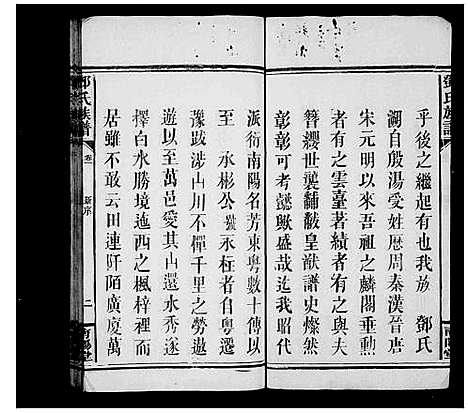 鄧氏族譜
乎後之繼起有也我族鄧氏
溯自殷湯受姓歷周秦漢晉唐
宋元明以來吾祖之麟閣垂勳
者有之雲臺著績者有之與夫
簪纓世襲黼黻皇猷譜史燦然
彰彰可考懿歟盛哉迄我昭
派衍南陽名芳東粵數十傳以
至 永彬公號永桎者自粵遷
豫跋涉山川不憚千里之勞遨
遊以至萬邑愛其山還水秀遂
擇白水勝境迤西之楓梓裡而
居雖不敢云田連阡陌廣廈萬
鄧氏族譜
卷一
新序
二
南陽堂